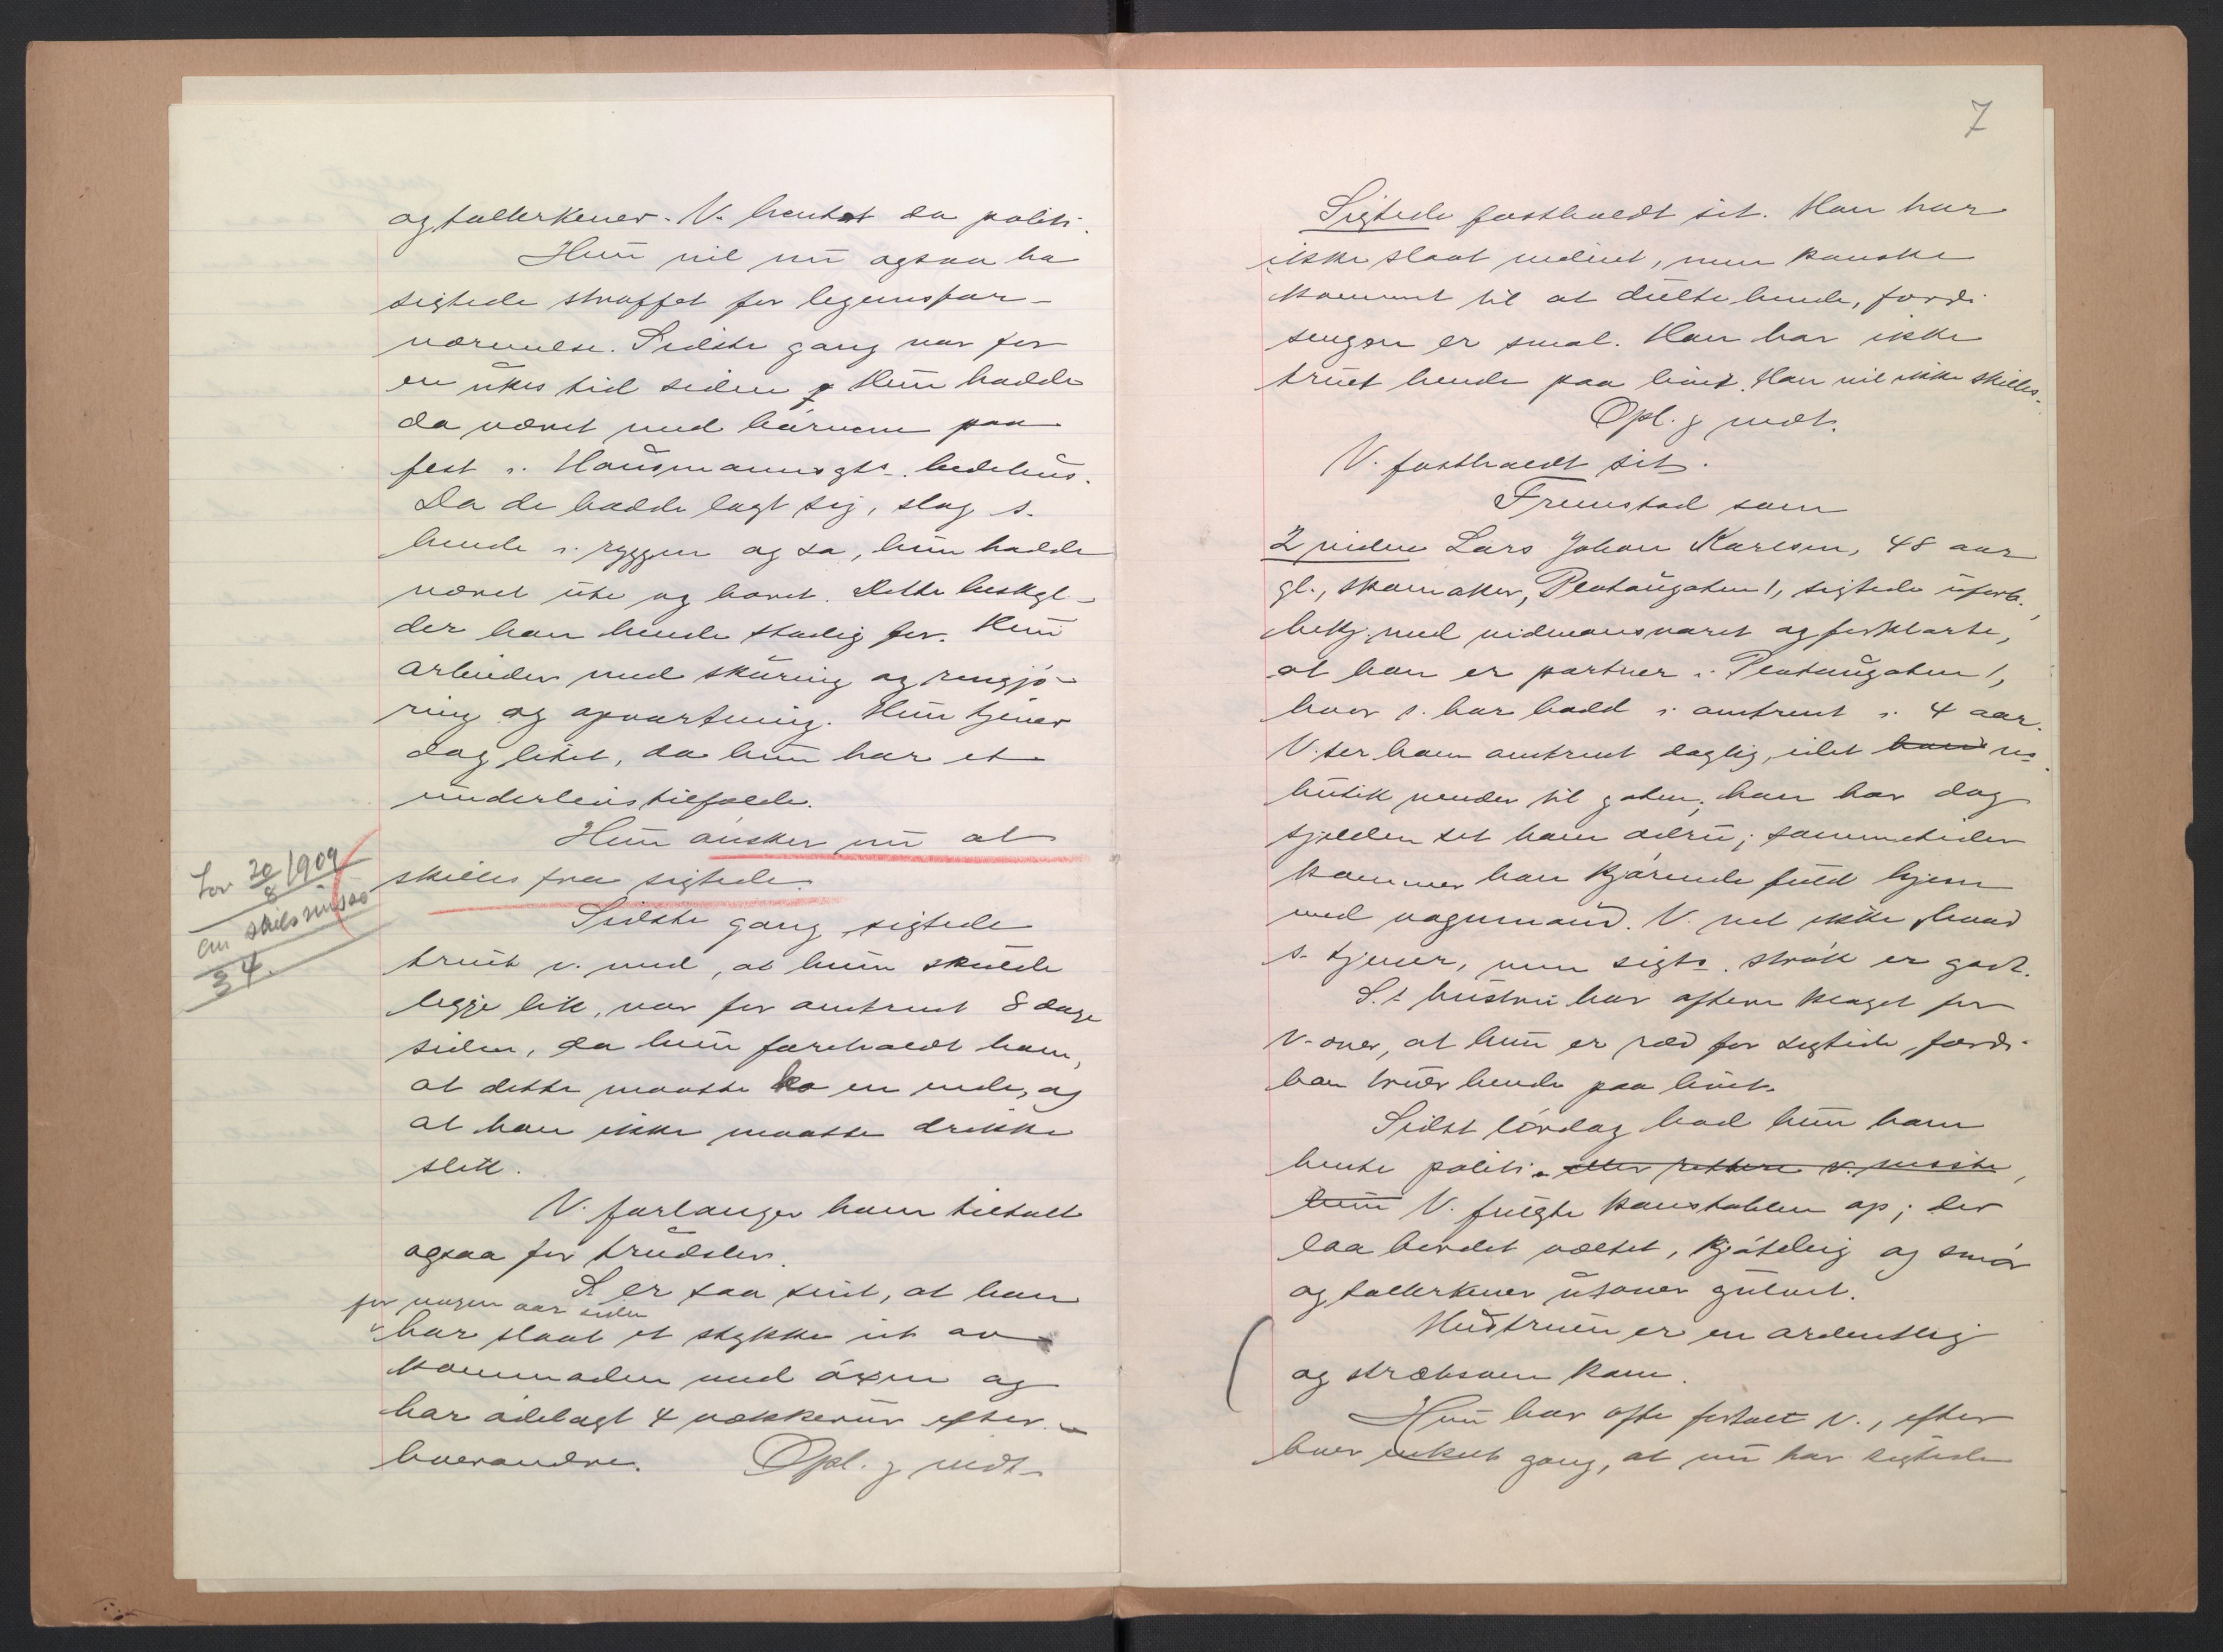 og tallerkener. V. hentet da politi.
Hun vil nu ogsaa ha
sigtede straffet for legemsfor-
nærmelse. Sidste gang var for
en ukes tid siden. Hun hadde
da været med børnene paa
fest i Hausmannsgts. bedehus.
Da de hadde lagt sig, slog s.
hende i ryggen og sa, hun hadde
været ute og horet. Dette beskyl-
der han hende stadig for. Hun
arbeider med skuring og rengjø-
ring og opvartning. Hun tjener
dog litet, da hun har et
underlivstilfælde.
Hun ønsker nu at
skilles fra sigtede.
Lov 20/8 1909
om skilsmisse
34.
Sidste gang sigtede
truet v. med, at hun skulde
ligge lik, var for omtrent 8 dage
siden, da hun foreholdt ham,
at dette maatte ha en ende, og
at han ikke maatte drikke
slik.
V. forlanger ham tiltalt
ogsaa for trudsler.
S. er saa sint, at han
for nogen aar siden
har slaat et stykke ut av
kommoden med øxen og
har ødelagt 4 vækkerur efter
hverandre. Opl. g vedt.
7
Sigtede fastholdt sit. Han har
ikke slaat vedint, men kanske
kommet til at dulte hende, fordi
sengen er smal. Han har ikke
truet hende paa livet. Han vil ikke skilles.
Opl. g vedt.
V. fastholdt sit.
Fremstod som
2 vidne Lars Johan Karlsen, 48 aar
gl., skomaker, Plataugaten 1, sigtede uforb.
bekj. med vidneansvaret og forklarte,
at han er portner i Plataugaten 1,
hvor s. har bodd i omtrent i 4 aar.
V. ser ham omtrent daglig, idet hans vs.
butik vender til gaten; han har dog
sjelden set ham ædru; sommetider
kommer han kjørende fuld hjem
med vognmand. V. vet ikke, hvad
s. tjener, men sigts. strøk er godt.
S.s hustru har oftere klaget for
v. over, at hun er ræd for sigtede, fordi
han truer hende paa livet.
Sidst lørdag bad hun ham
hente politi. eller rettere s. maatte,
hun V. fulgte konstablen op; der
laa bordet væltet, kjøtdeig og smør
og tallerkener utover gulvet.
Hustruen er en ordentlig
og stræbsom kone.
Hun har ofte fortalt v., efter
hver enkelt gang, at nu har sigtede